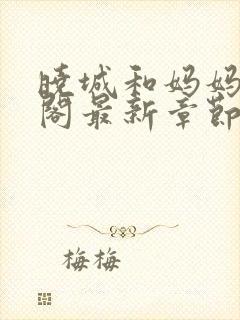 晓城和妈妈
阁最新章节
梅梅